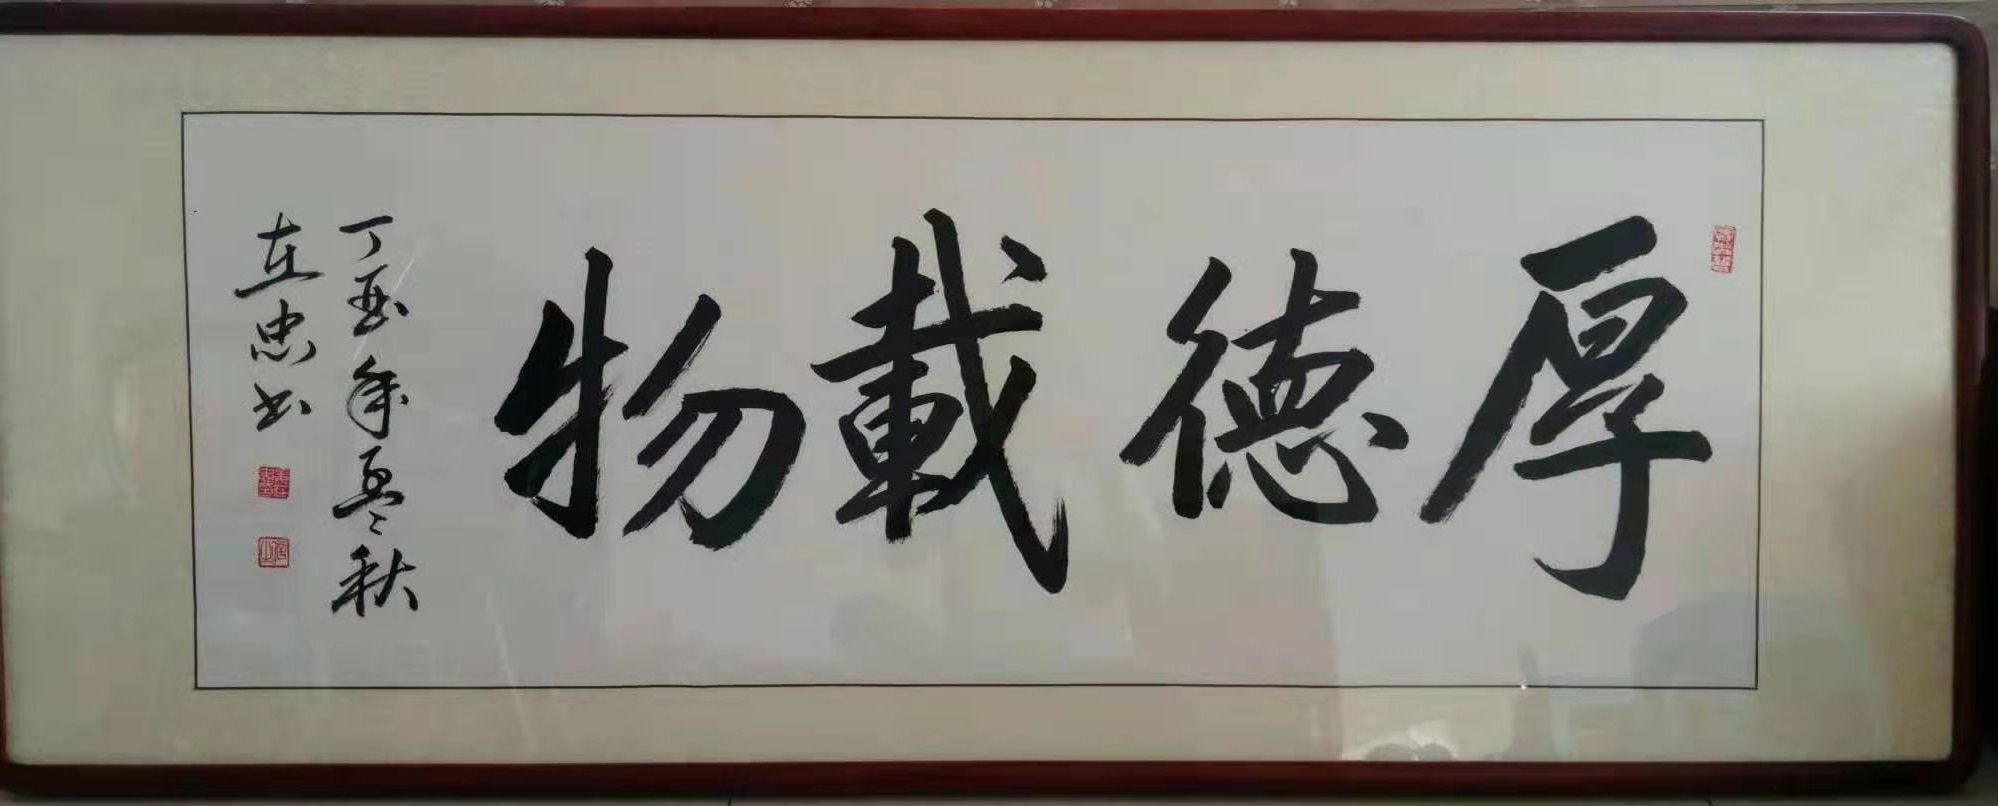 厚德載物
丁酉年秋
在忠书